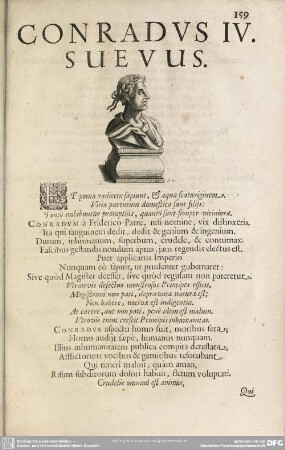 159
CONRADVS IV.
SUEVUS.
UT poma radicem sapiunt, & aqua scaturiginem,
Vitia parentum domestica sunt filijs:
Tanto audebuntur promptiùs, quantò sunt semper viciniora.
CONRADUM à Friderico Patre, nisi nomine, vix distinxeris.
Ita qui sanguinem dedit, dedit & genium & ingenium.
Durum, inhumanum, superbum, crudele, & contumax.
Fascibus gestandis nondum aptus, jam regendis electus est.
Puer applicatus Imperio
Nunquam eò sapuit, ut prudenter gubernaret:
Sive quòd Magister deesset, sive quòd regulam non pateretur.
Utriusvis defectus monstrosus Principes efficit.
Magistrum non pati, depravata naturæ est;
Non habere, miseræ est indigentia.
At carere, aut non pati, penè idem est malum.
Utrovis enim crescit Principis inhumanitas.
CONRADUS aspectu homo fuit, moribus fera,
Homo audiit sæpè, humanus nunquam.
Illius inhumanitatem publica compita detestata,
Afflictorum vocibus & gemitibus resonabant.
Qui timeri maluit, quàm amari,
Risum subditorum dolori habuit, fletum voluptati.
Crudelis nimium est animus,
Qui